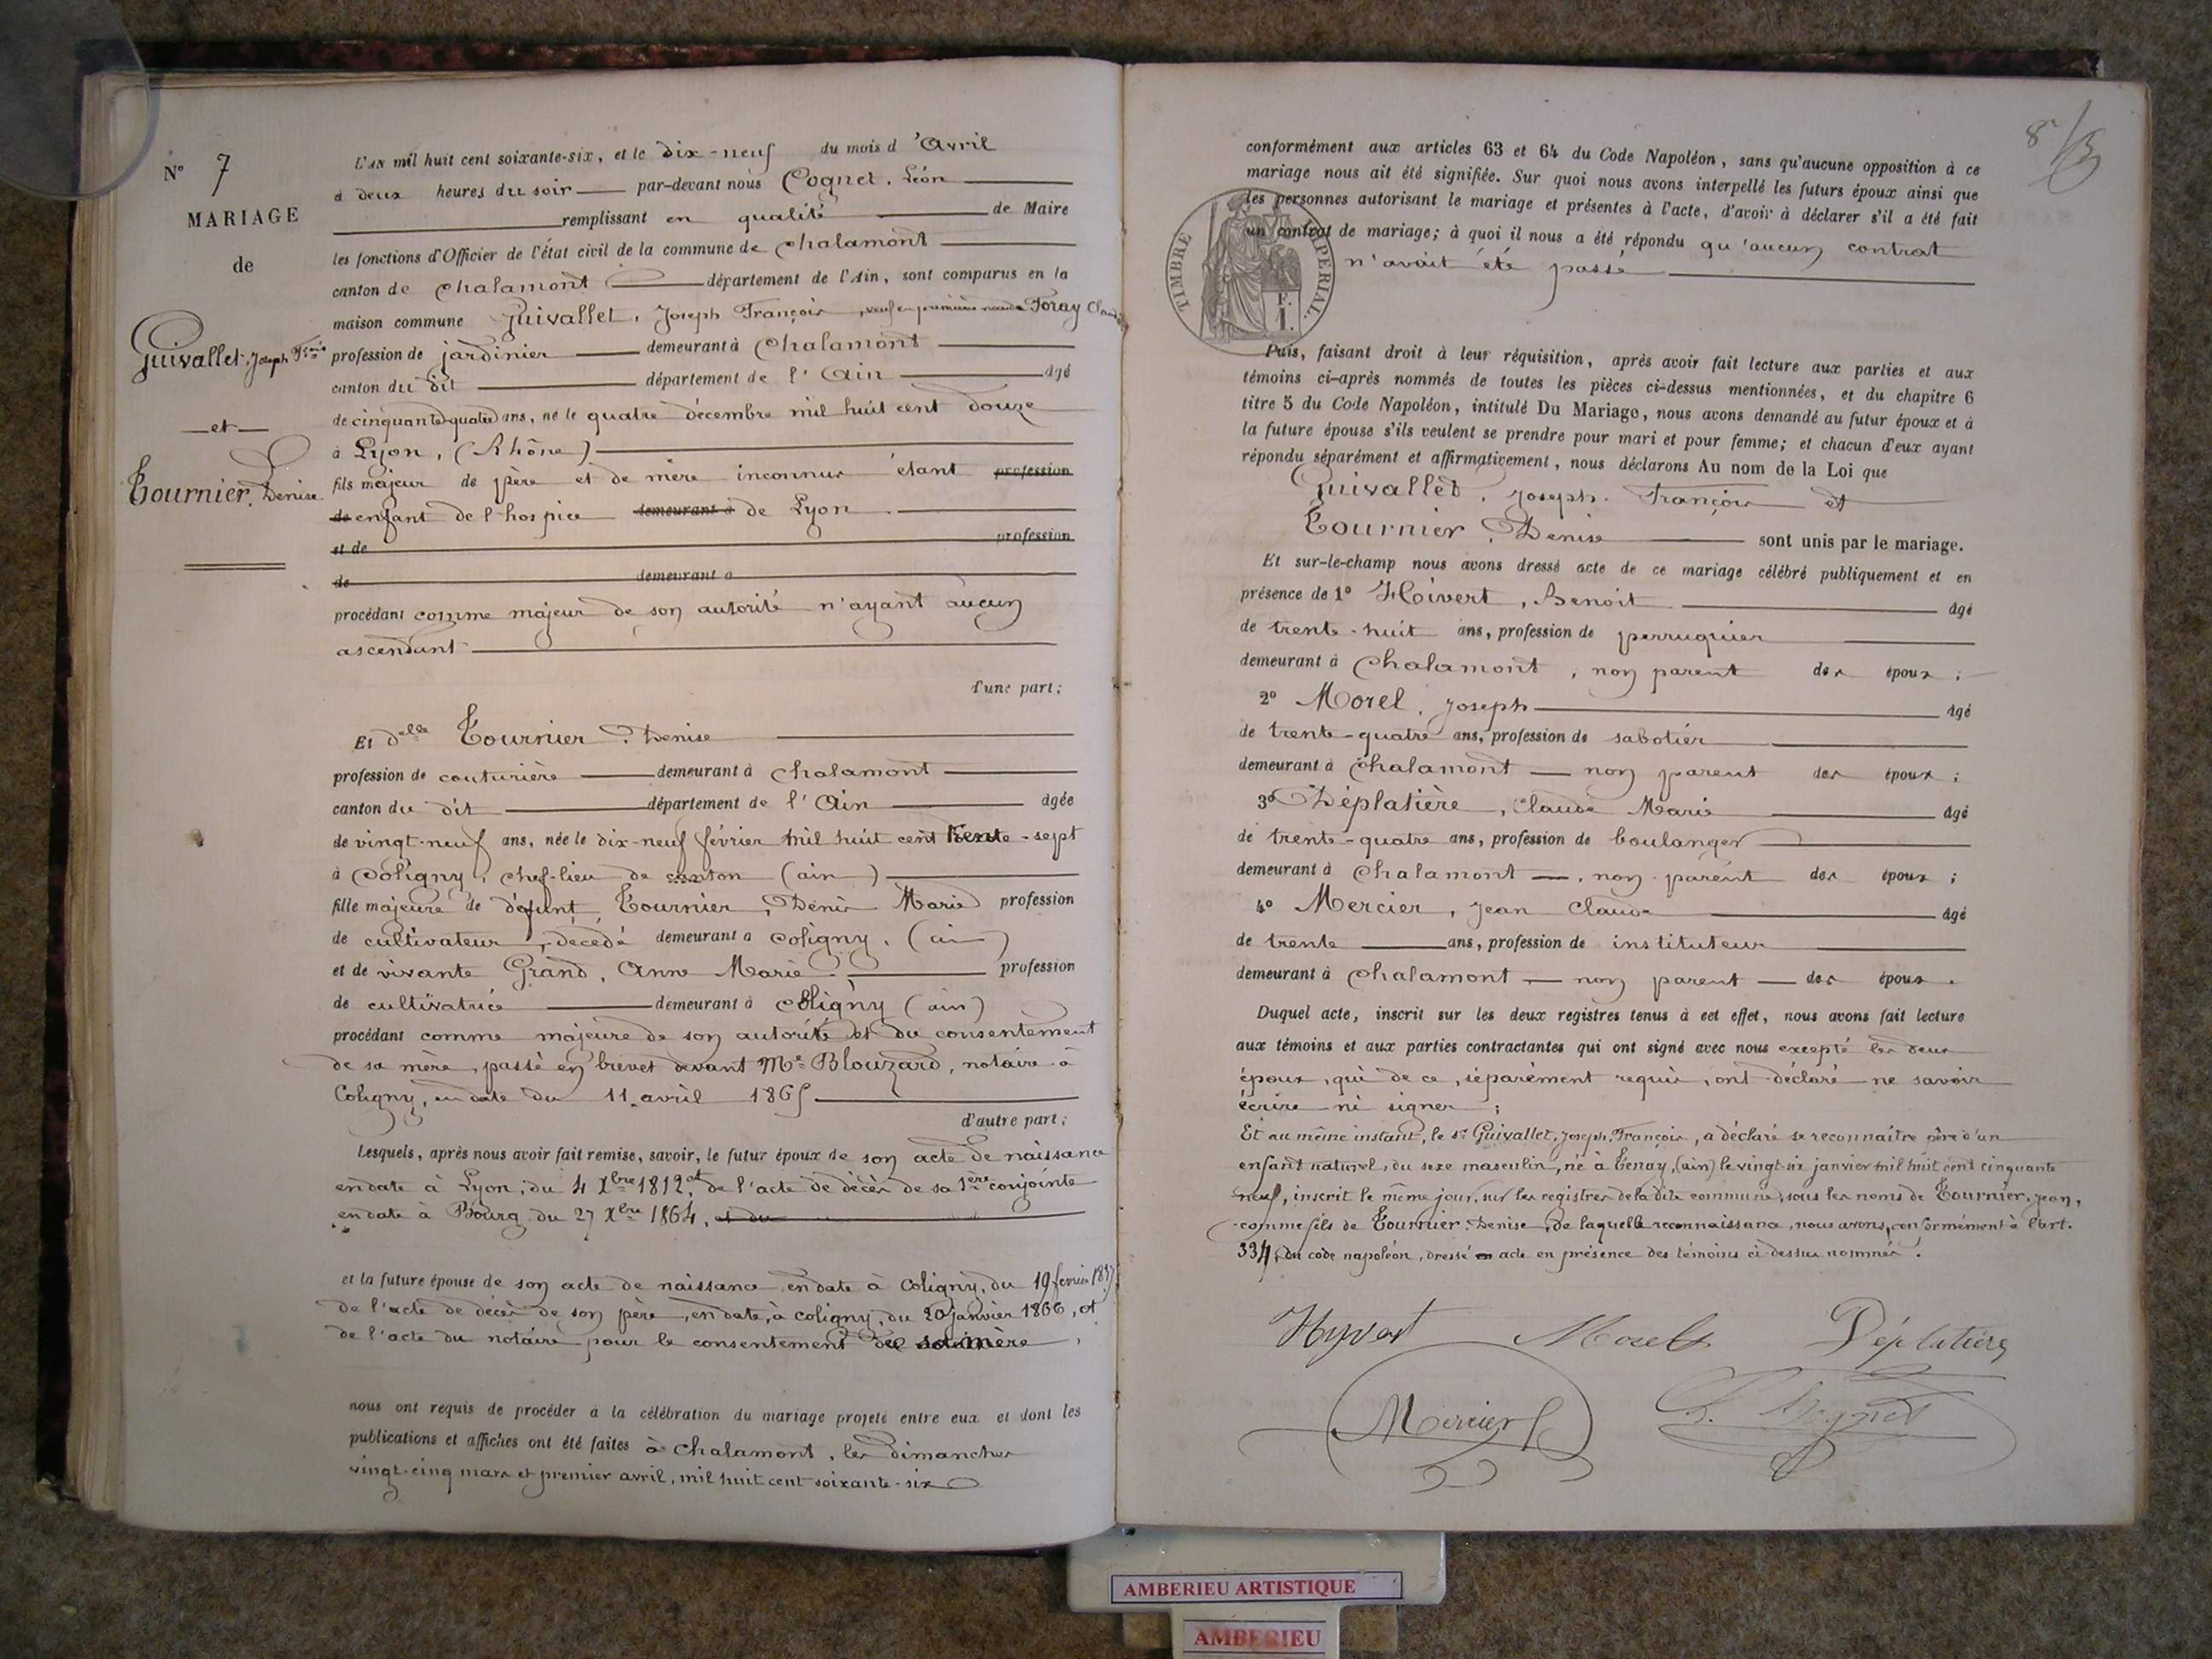 N° 7
MARIAGE
de
Guivallet, Joseph Fçois
—et—
Tournier, Denise
L'AN mil huit cent soixante-six, et le dix-neuf du mois d'Avril
à deux heures du soir — par-devant nous Cognet, Léon
remplissant en qualité de Maire
les fonctions d'Officier de l'état civil de la commune de Chalamont
canton de Chalamont département de l'Ain, sont comparus en la
maison commune Guivallet, Joseph François, veuf en premières noces de Foray Claudi
profession de jardinier demeurant à Chalamont
canton du dit département de l'Ain âgé
de cinquante-quatre ans, né le quatre décembre mil huit cent douze
à Lyon, (Rhône)
fils majeur de père et de mère inconnus étant profession
de enfant de l'hospice demeurant à de Lyon
et de profession
de demeurant à
procédant comme majeur de son autorité n'ayant aucun
ascendant
d'une part;
Et delle Tournier, Denise
profession de couturière demeurant à Chalamont
canton du dit département de l'Ain âgée
de vingt-neuf ans, née le dix-neuf février mil huit cent trente-sept
à Coligny, chef-lieu de canton (ain)
fille majeure de défunt Tournier, Denis Marie profession
de cultivateur, décédé demeurant à Coligny, (ain)
et de vivante Grand, Anne Marie profession
de cultivatrice demeurant à Coligny (ain)
procédant comme majeure de son autorité et du consentement
de sa mère, passé en brevet devant Me Blouzard, notaire à
Coligny, en date du 11 avril 186
d'autre part;
Lesquels, après nous avoir fait remise, savoir, le futur époux de son acte de naissance
en date à Lyon, du 4 Xbre 1812, et de l'acte de décès de sa 1ère conjointe
en date à Bourg du 27 Xbre 1864, et du
et la future épouse de son acte de naissance en date à Coligny, du 19 février 1837
de l'acte de décès de son père, en date, à coligny, du 20 janvier 1866, et
de l'acte du notaire pour le consentement de sa mère,
nous ont requis de procéder à la célébration du mariage projeté entre eux et dont les
publications et affiches ont été faites à Chalamont, les dimanches
vingt-cinq mars et premier avril, mil huit cent soixante-six
8
conformément aux articles 63 et 64 du Code Napoléon, sans qu'aucune opposition à ce
mariage nous ait été signifiée. Sur quoi nous avons interpellé les futurs époux ainsi que
les personnes autorisant le mariage et présentes à l'acte, d'avoir à déclarer s'il a été fait
un contrat de mariage; à quoi il nous a été répondu qu'aucun contrat
n'avait été passé
TIMBRE IMPERIAL.
Puis, faisant droit à leur réquisition, après avoir fait lecture aux parties et aux
témoins ci-après nommés de toutes les pièces ci-dessus mentionnées, et du chapitre 6
titre 5 du Code Napoléon, intitulé Du Mariage, nous avons demandé au futur époux et à
la future épouse s'ils veulent se prendre pour mari et pour femme; et chacun d'eux ayant
répondu séparément et affirmativement, nous déclarons Au nom de la Loi que
Guivallet, Joseph François et
Tournier, Denise sont unis par le mariage.
Et sur-le-champ nous avons dressé acte de ce mariage célébré publiquement et en
présence de 1° Hivert, Benoît âgé
de trente-huit ans, profession de perruquier
demeurant à Chalamont, non parent des époux;
2° Morel, Joseph âgé
de trente-quatre ans, profession de sabotier
demeurant à Chalamont — non parent des époux;
3° Déplatière, Claude Marie âgé
de trente-quatre ans, profession de boulanger
demeurant à Chalamont —, non parent des époux;
4° Mercier, Jean Claude âgé
de trente ans, profession de instituteur
demeurant à Chalamont — non parent — des époux.
Duquel acte, inscrit sur les deux registres tenus à cet effet, nous avons fait lecture
aux témoins et aux parties contractantes qui ont signé avec nous excepté les deux
époux, qui de ce, séparément requis, ont déclaré ne savoir
écrire ni signer;
Et au même instant, le sr Guivallet, Joseph François, a déclaré se reconnaître père d'un
enfant naturel, du sexe masculin, né à Tenay, (ain) le vingt-six janvier mil huit cent cinquante
neuf, inscrit le même jour, sur les registres de la dite commune, sous les noms de Tournier, Jean,
comme fils de Tournier, Denise, de laquelle reconnaissance, nous avons, conformément à l'art.
334, du code napoléon, dressé acte en présence des témoins ci-dessus nommés.
Hyvert Morel Déplatière
Mercier L. Cognet
AMBERIEU ARTISTIQUE
AMBERIEU